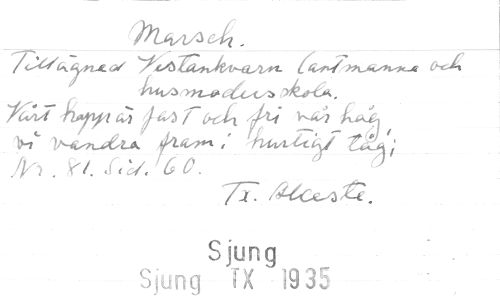 Marsch.
Tillägnad Västankvarn lantmanna och
husmodersskola.
Vårt hopp är fast och fri vår håg,
vi vandra fram i hurtigt tåg;
Nr. 81. Sid. 60.
Tx. Alceste.
Sjung
Sjung TX 1935